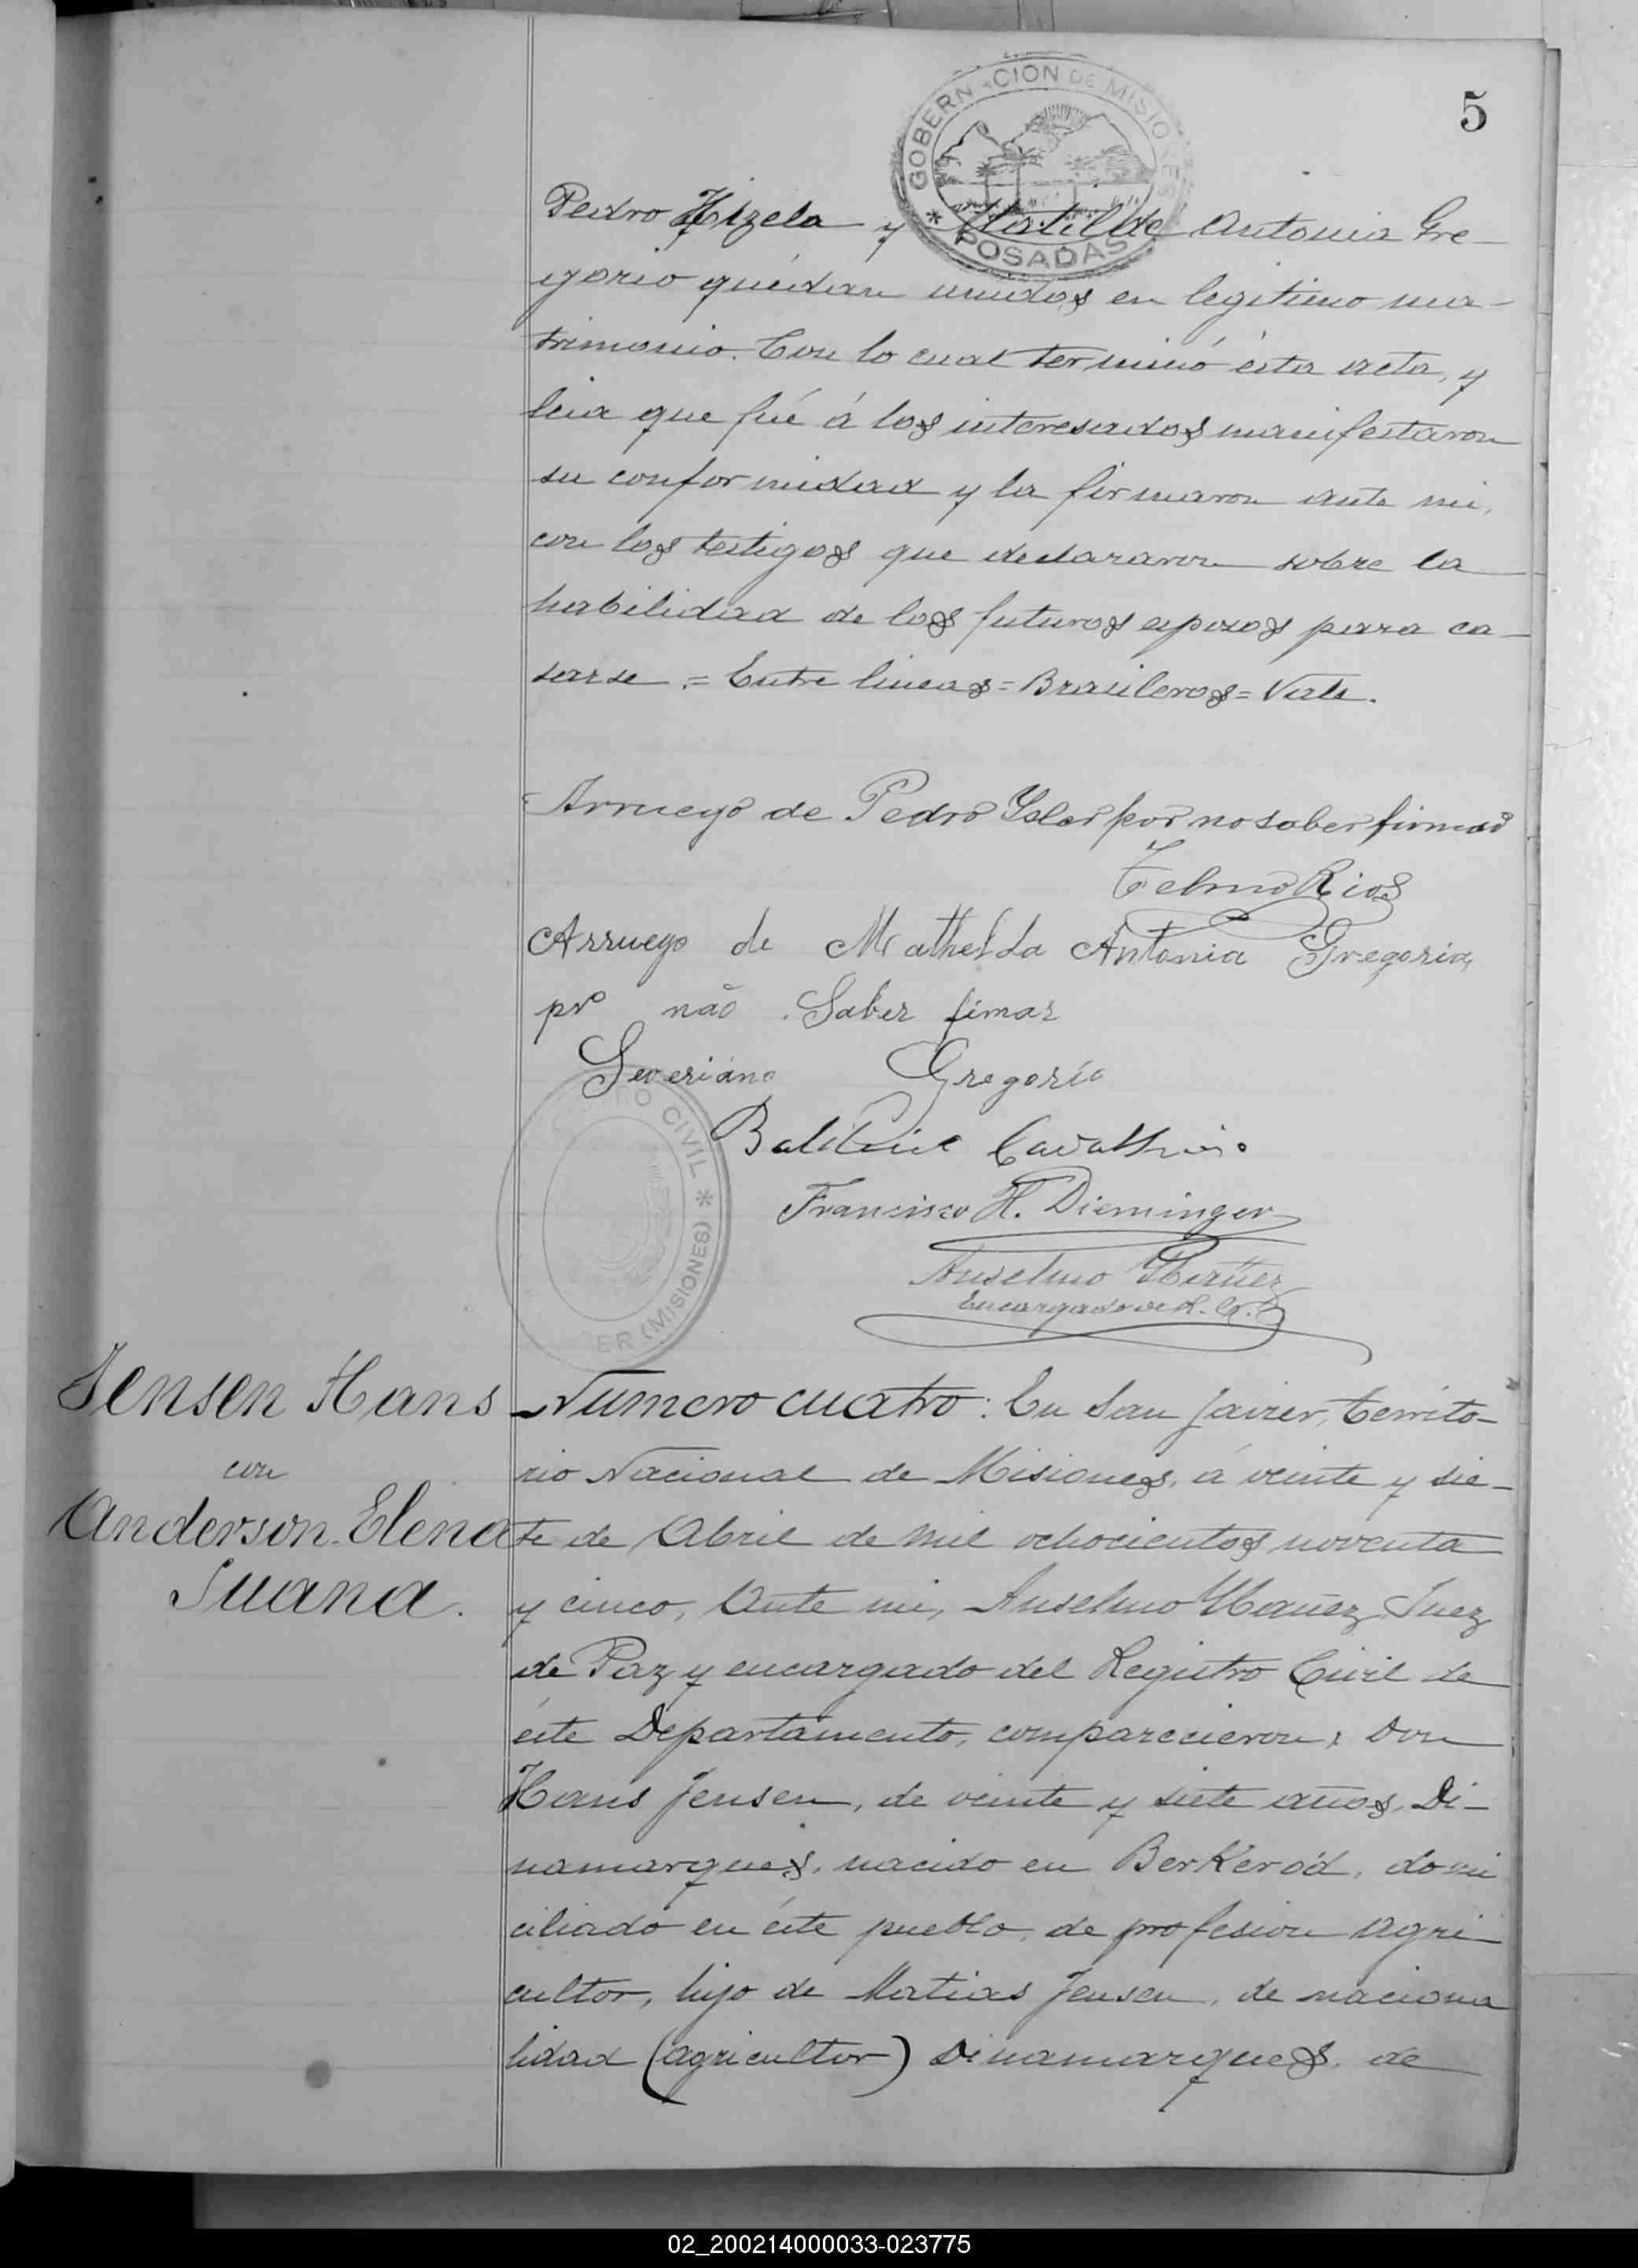 5
GOBERNACION DE MISIONES
* POSADAS
Pedro Hizela y Matilde Antonia Gre-
gorio quedan unidos en legitimo ma-
trimonio. Con lo cual terminó ésta acta, y
leia que fué á los interesados manifestaron
su conformidad y la firmaron ante mi,
con los testigos que declararon sobre la
habilidad de los futuros esposos para ca-
sarse.= Entre lineas=Brasileros=Vale.
Arruego de Pedro por no saber firmar
Telmo Rios
Arruego de Mathelda Antonia Gregoria,
pr não Saber fimar
Severiano Gregorio
CIVIL * (MISIONES)
Francisco H. Dieminger
Anselmo Ybañez
Encargado de R. C.
Jensen Hans
con
Anderson Elena
Juana.
Numero cuatro: En San Javier, Territo-
rio Nacional de Misiones, á veinte y sie-
te de Abril de mil ochocientos noventa
y cinco, Ante mi, Anselmo Ybañez Juez
de Paz y encargado del Registro Civil de
éste Departamento, comparecieron: Don
Hans Jensen, de veinte y siete años, Di-
namarques, nacido en Berkeröd, domi
ciliado en éste pueblo, de profesion agri
cultor, hijo de Matias Jensen, de naciona
lidad (agricultor) Dinamarques, de
02_200214000033-023775